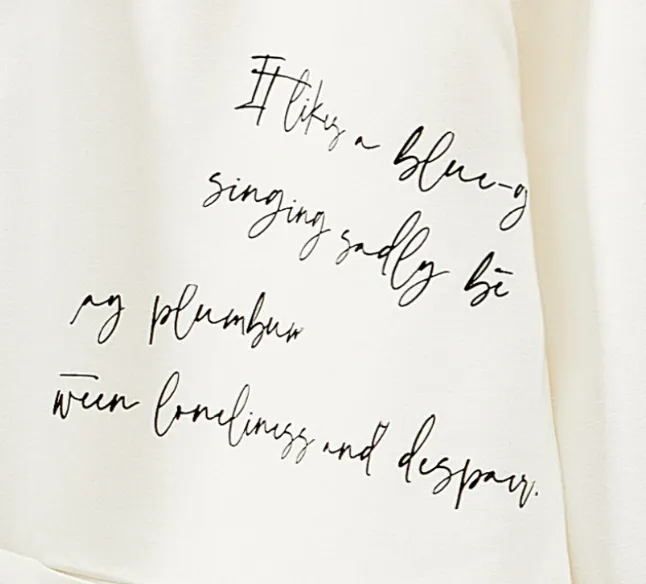 It likes a blue-g
singing sadly be
ay plumbum
ween loneliness and despair.